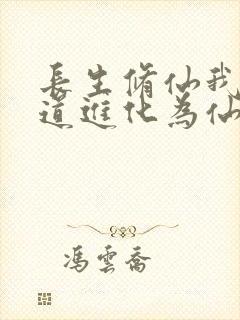 長生脩仙我
道進化為仙
馮雲喬